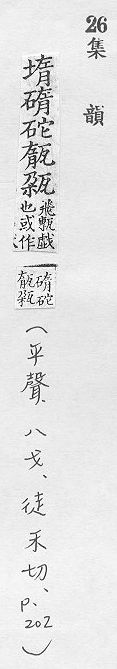 26 集韻
堶碢砣
飛甎戲
也或作
碢砣
(平聲、八戈、徒禾切、p.202)